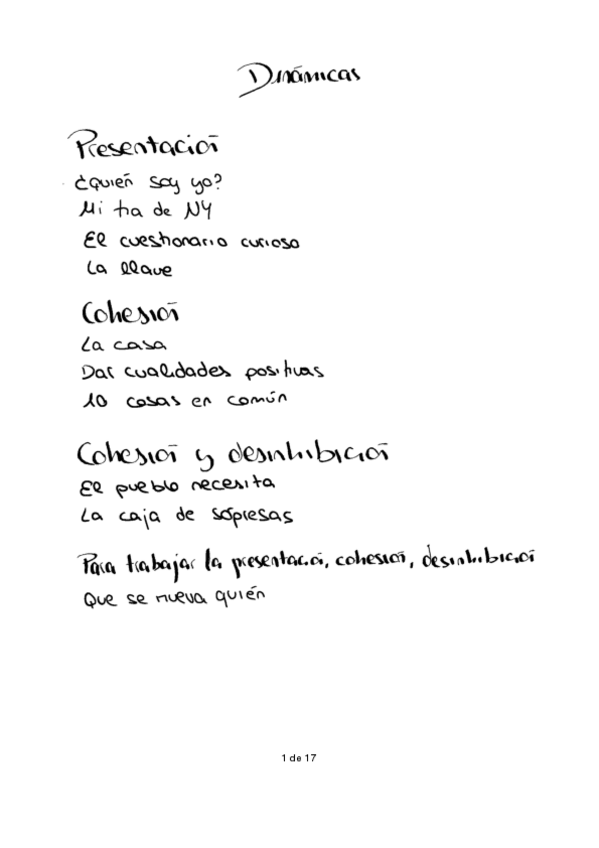 Dinámicas
Presentación
¿Quién soy yo?
Mi tía de NY
El cuestionario curioso
La llave
Cohesión
La casa
Dar cualidades positivas
10 cosas en común
Cohesión y desinhibición
El pueblo necesita
La caja de sopresas
Para trabajar la presentación, cohesión, desinhibición
Que se mueva quién
1 de 17